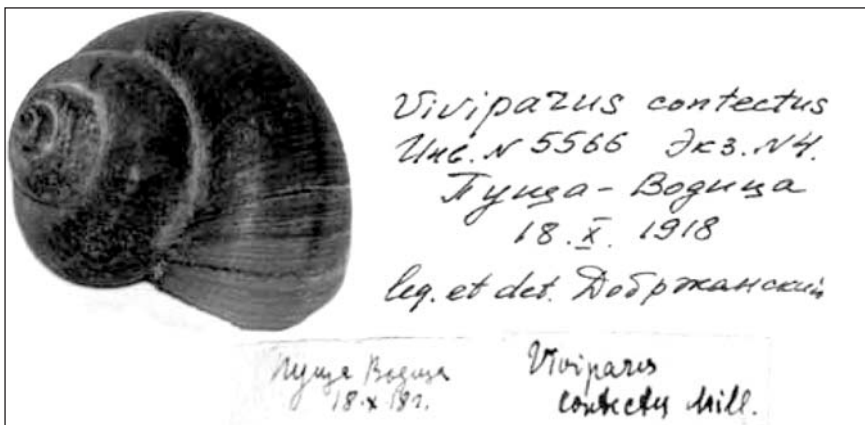 Viviparus contectus
Инв. N 5566 Экз. N4.
Пуща-Водица
18.X. 1918
leg. et det. Добржанский
Пуща Водица
18.X.18г.
Viviparus
contectus Mill.